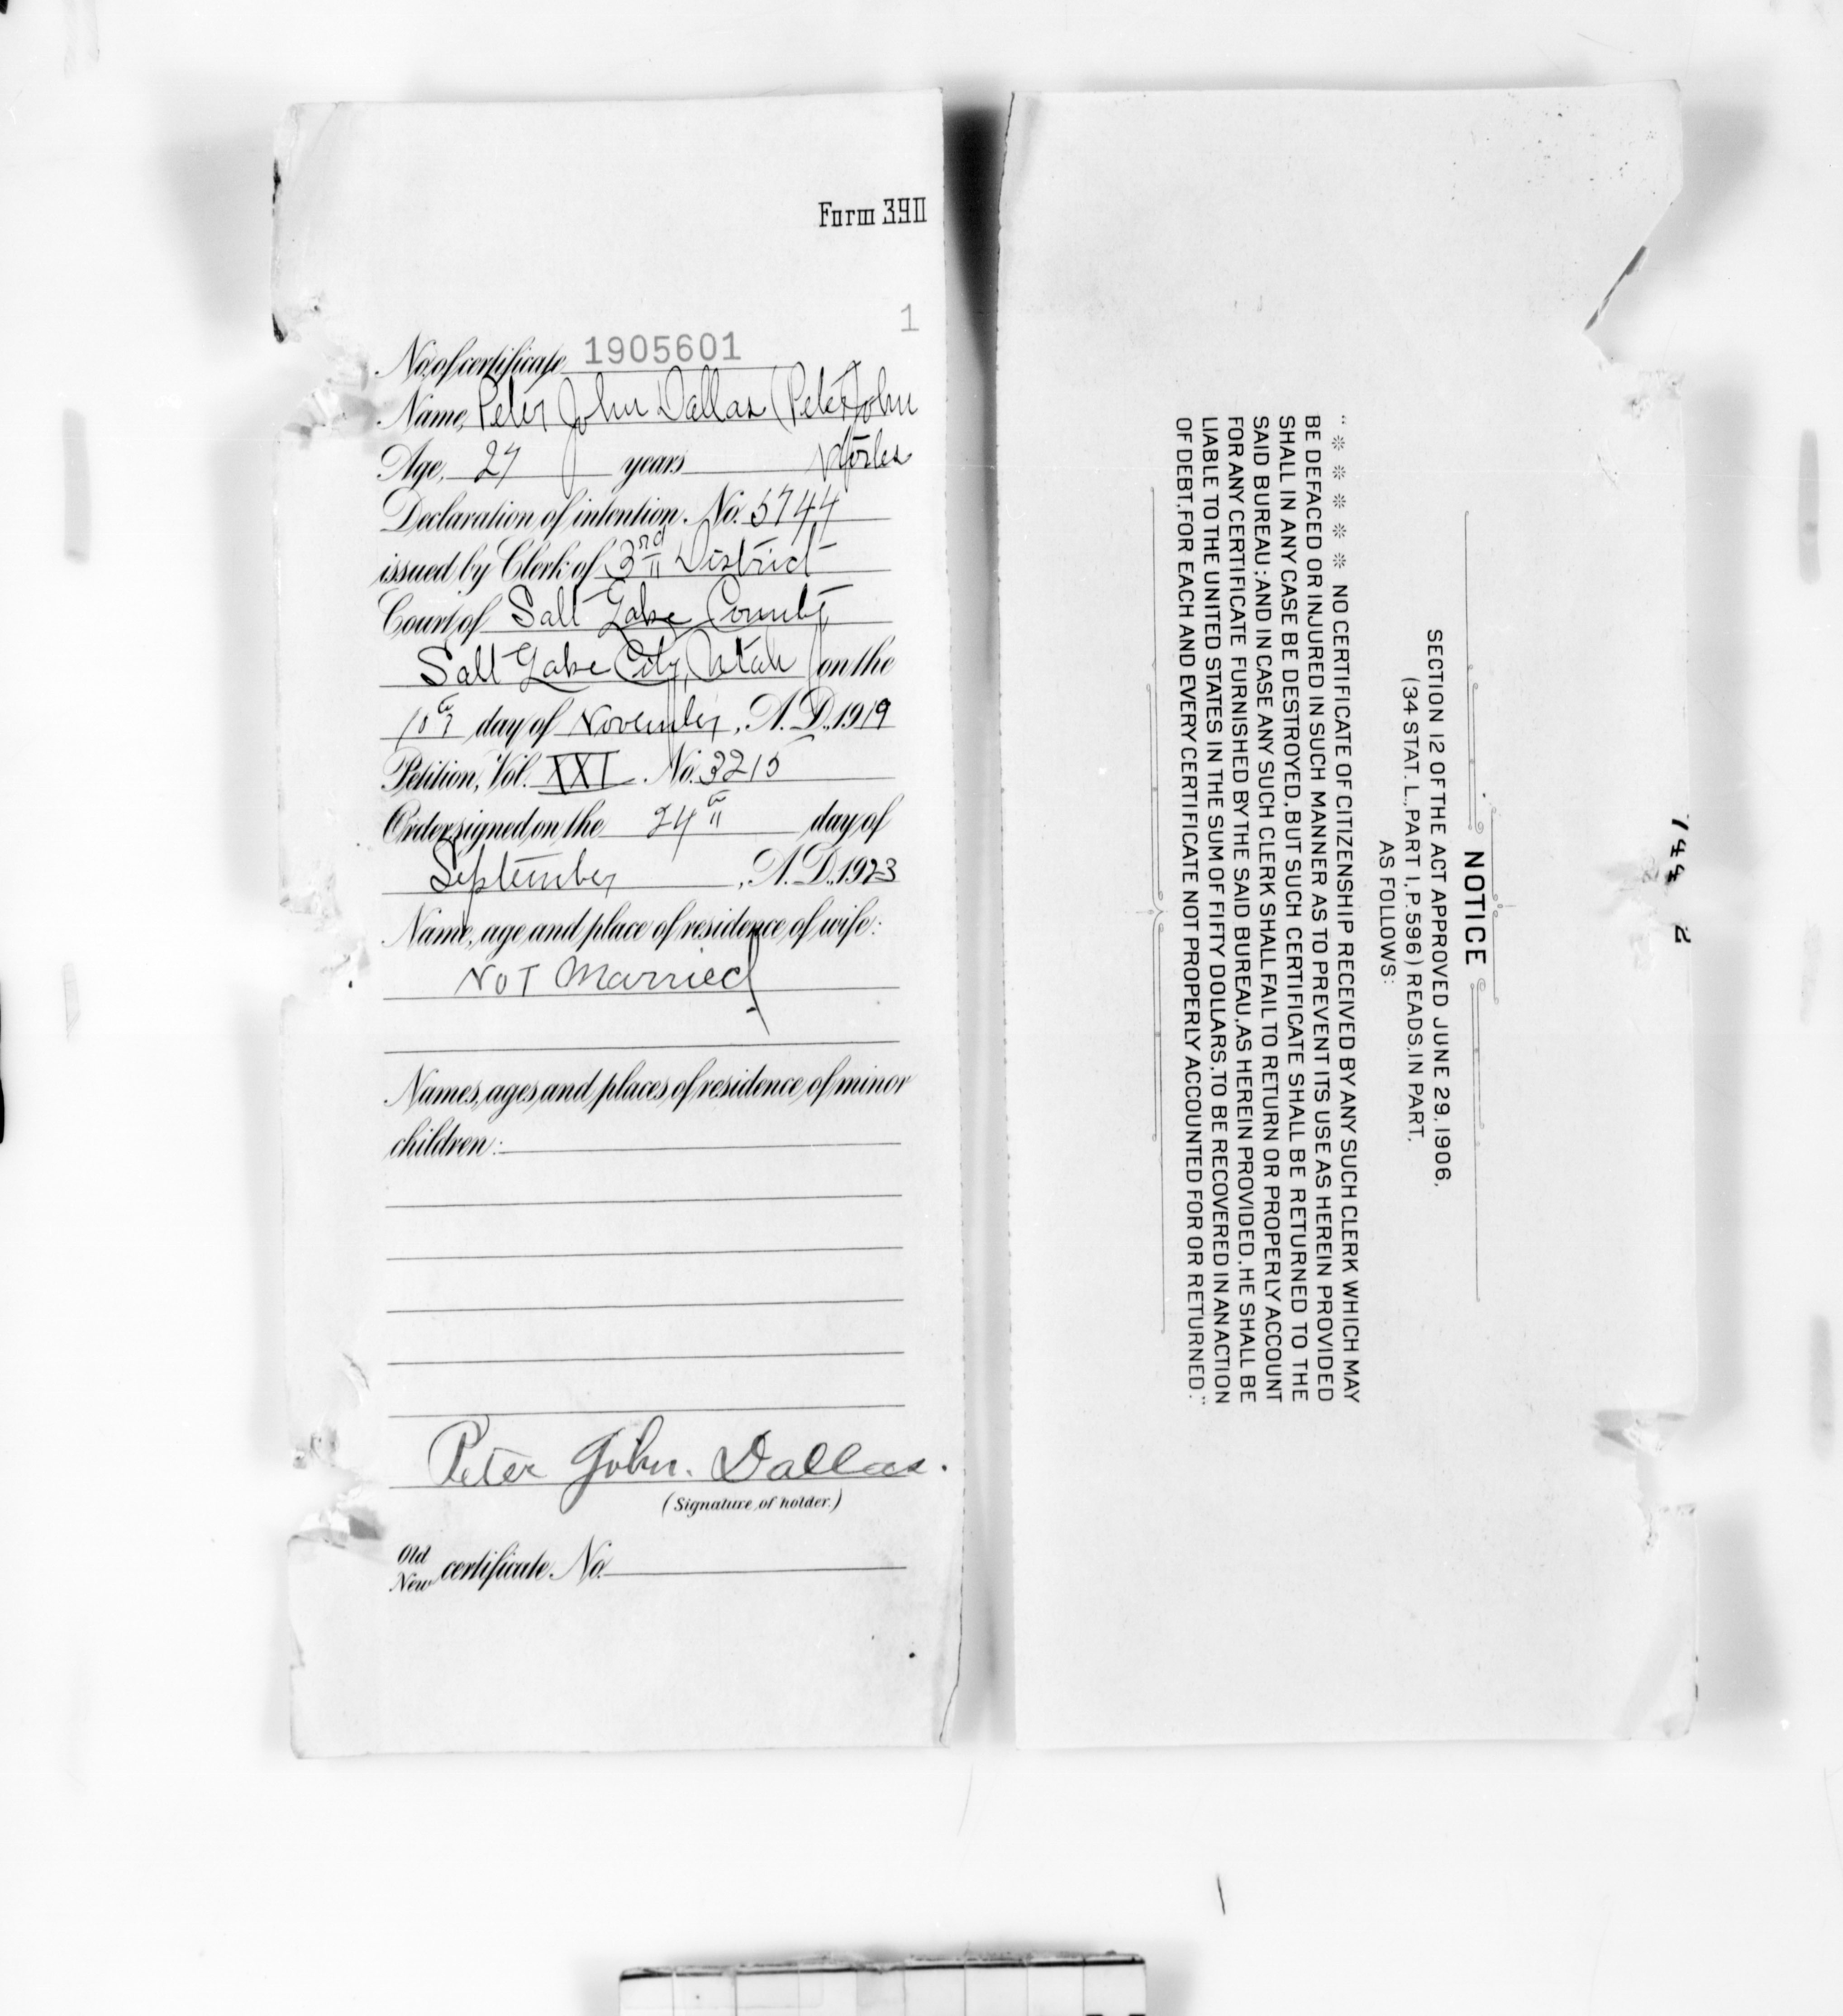 Form 390
1
No. of certificate 1905601
Name, Peter John Dallas (Peter John
Age, 27 years
Declaration of intention. No. 5744
issued by Clerk of 3rd District
Court of Salt Lake County
Salt Lake City, Utah on the
10th day of November, A.D. 1919
Petition, Vol. XXI. No. 3215
Order signed on the 24th day of
September, A.D. 1923
Name, age and place of residence of wife:
NOT Married
Names, ages and places of residence of minor
children:
Peter John. Dallas.
(Signature of holder.)
Old
New certificate No.
NOTICE
SECTION 12 OF THE ACT APPROVED JUNE 29, 1906,
(34 STAT. L., PART I, P. 596) READS, IN PART,
AS FOLLOWS:
“ * * * * * NO CERTIFICATE OF CITIZENSHIP RECEIVED BY ANY SUCH CLERK WHICH MAY
BE DEFACED OR INJURED IN SUCH MANNER AS TO PREVENT ITS USE AS HEREIN PROVIDED
SHALL IN ANY CASE BE DESTROYED, BUT SUCH CERTIFICATE SHALL BE RETURNED TO THE
SAID BUREAU; AND IN CASE ANY SUCH CLERK SHALL FAIL TO RETURN OR PROPERLY ACCOUNT
FOR ANY CERTIFICATE FURNISHED BY THE SAID BUREAU, AS HEREIN PROVIDED, HE SHALL BE
LIABLE TO THE UNITED STATES IN THE SUM OF FIFTY DOLLARS, TO BE RECOVERED IN AN ACTION
OF DEBT, FOR EACH AND EVERY CERTIFICATE NOT PROPERLY ACCOUNTED FOR OR RETURNED.”